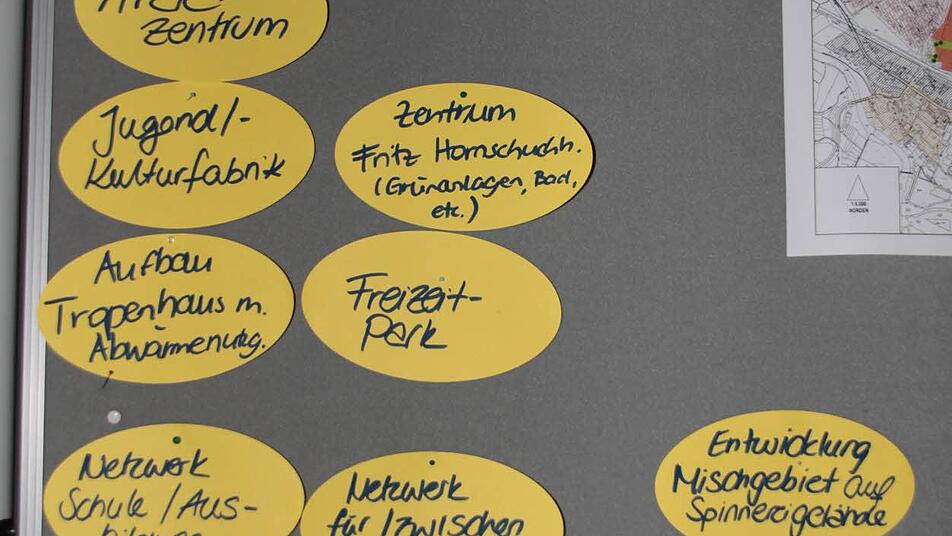 zentrum
Jugend/-
Kulturfabrik
Zentrum
Fritz Hornschuchh.
(Grünanlagen, Bad,
etc.)
Aufbau
Tropenhaus m.
Abwärmenutzg.
Freizeit-
Park
Netzwerk
Schule / Aus-
Netzwerk
für / zwischen
Entwicklung
Mischgebiet auf
Spinnereigelände
1:5.000
NORDEN